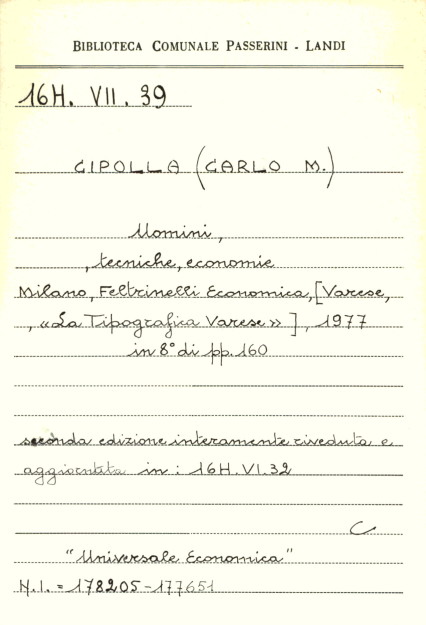 BIBLIOTECA COMUNALE PASSERINI - LANDI
16H. VII. 39
CIPOLLA (CARLO M.)
Uomini,
, tecniche, economie
Milano, Feltrinelli Economica, [Varese,
, «La Tipografica Varese»], 1977
in 8° di pp. 160
seconda edizione interamente riveduta e
aggiornata in: 16H. VI. 32
C
"Universale Economica"
N.I. = 178205-177651